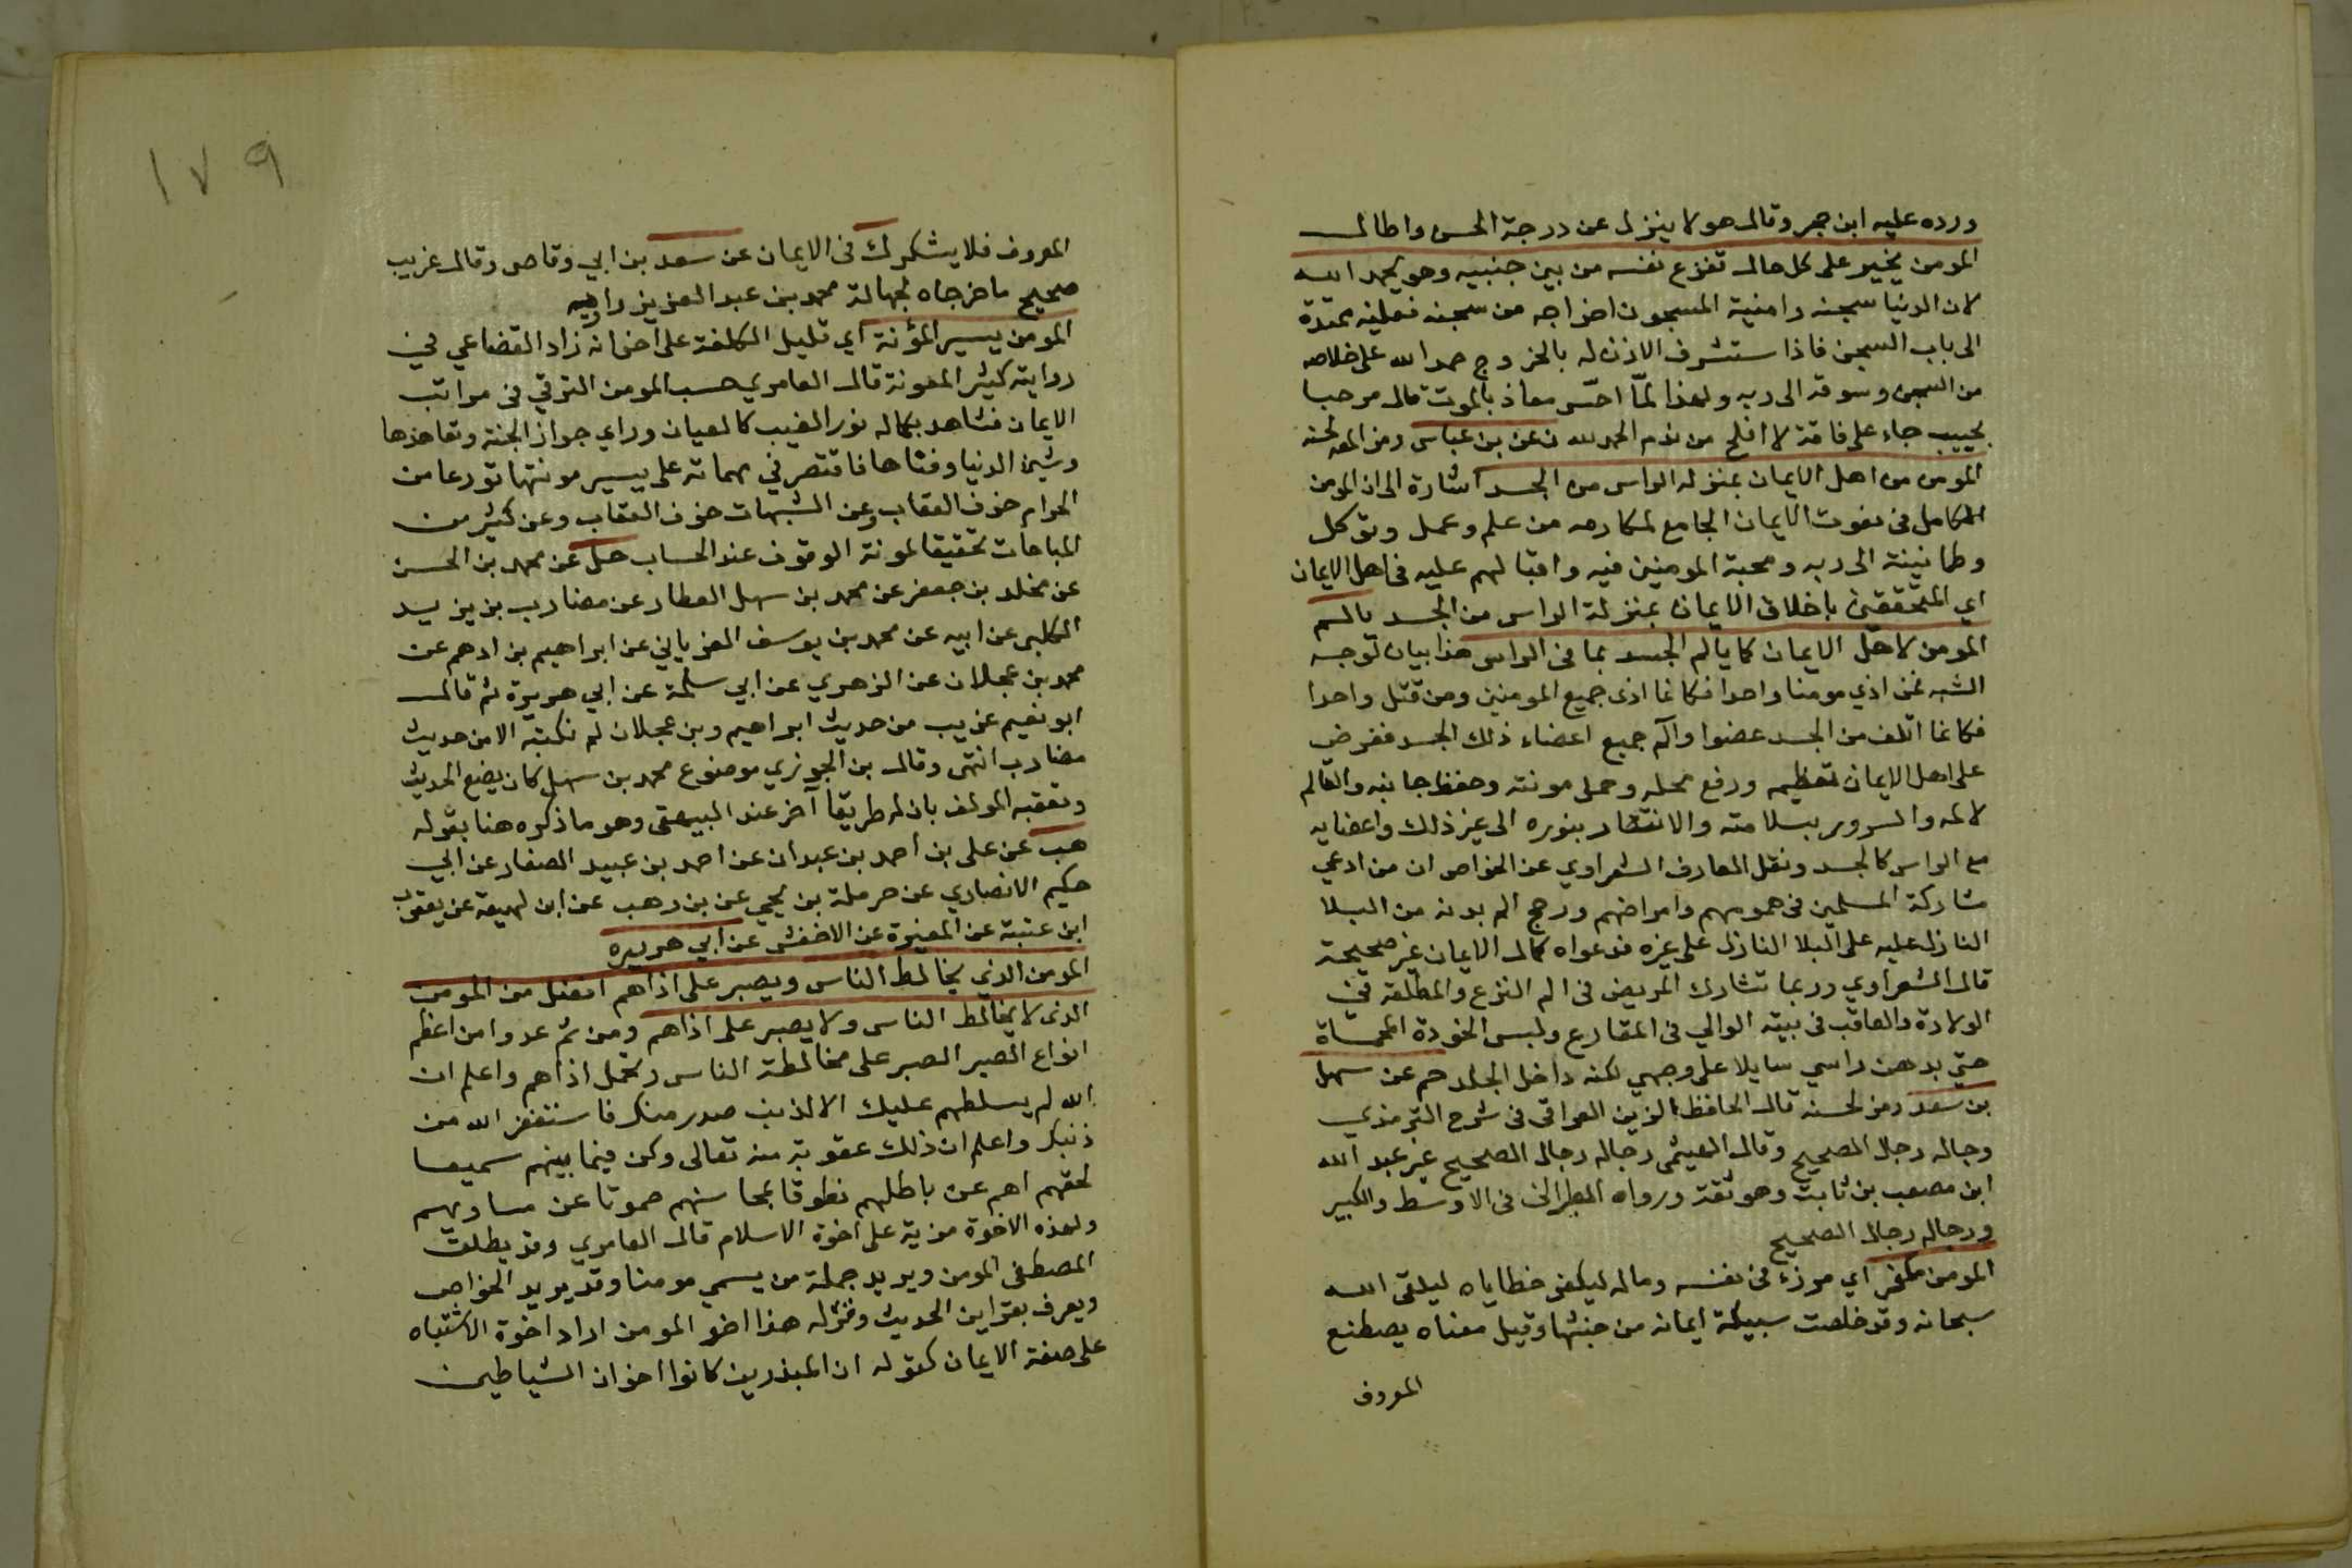 ورده عليه ابن حجر وقال هو لا ينزل عن درجة الحسن واطال
المومن بخير على كل حال تنزع نفسه من بين جنبيه وهو يحمد الله
لان الدنيا سجنه وامنية المسجون اخراجه من سجنه فعلينه ممتدة
الى باب السجن فاذا استشرف الاذن له بالخروج حمد الله على خلاصه
من السجن وسوقه الى ربه ولهذا لمّا احسّ معاذ بالموت قال مرحبا
بحبيب جاء على فاقة لا افلح من ندم الحمد لله ن عن بن عباس رمز المص لحسنه
المومن من اهل الايمان بمنزلة الراس من الجسد اشارة الى ان المومن
الكامل في نعوت الايمان الجامع لمكارمه من علم وعمل وتوكل
وطمانينة الى ربه ومحبة المومنين فيه واقبالهم عليه في اهل الايمان
اي المتحققين باخلاق الايمان بمنزلة الراس من الجسد يالم
المومن لاهل الايمان كما يالم الجسد بما في الراس هذا بيان لوجه
الشبه فمن اذي مومنا واحدا فكانما اذى جميع المومنين ومن قتل واحدا
فكانما اتلف من الجسد عضوا وآلم جميع اعضاء ذلك الجسد ففرض
على اهل الايمان تعظيمه ورفع محله وحمل مونته وحفظ جانبه والتالم
لالمه والسرور بسلامته والانتصار بنوره الى غير ذلك واعضايه
مع الراس كالجسد ونقل العارف الشعراوي عن الخواص ان من ادعي
مشاركة المسلمين في همومهم وامراضهم ورجح الم بدنه من البلا
النازل عليه على البلا النازل على غيره فدعواه كمال الايمان غير صحيحة
قال الشعراوي وربما تشارك المريض في الم النزع والمطلقة في
الولادة والمعاقب في بيته الوالي في المقارع ولبس الخودة المحماة
حتى بدهن راسي سايلا على وجهي لكنه داخل الجلد حم عن سهل
بن سعد رمز لحسنه قال الحافظ الزين العراقي في شرح الترمذي
رجاله رجال الصحيح وقال الهيثمي رجاله رجال الصحيح غير عبد الله
ابن مصعب بن ثابت وهو ثقة ورواه الطبراني في الاوسط والكبير
ورجاله رجال الصحيح
المومن مكفر اي مرزء في نفسه وماله ليكفر خطاياه ليلقى الله
سبحانه وقد خلصت سبيكة ايمانه من خبثها وقيل معناه يصطنع
المعروف
١٧٩
المعروف فلا يشكر ك في الايمان عن سعد بن ابي وقاص وقال غريب
صحيح ما خرجاه لجهالة محمد بن عبد العزيز راويه
المومن يسير المؤنة اي قليل الكلفة على اخوانه زاد القضاعي في
روايته كثير المعونة قال العامري حسب المومن الترقي في مراتب
الايمان فشاهد بكماله نور الغيب كالعيان وراي جواز الجنة وتعاهدها
وشين الدنيا وفناها فاقتصر في مهماته على يسير مونتها تورعا من
الحرام خوف العقاب وعن الشبهات خوف العتاب وعن كثير من
المباحات تحقيقا لمونة الوقوف عند الحساب حل عن محمد بن الحسن
عن مخلد بن جعفر عن محمد بن سهل العطار عن مضارب بن يزيد
الكلبي عن ابيه عن محمد بن يوسف الفريابي عن ابراهيم بن ادهم عن
محمد بن عجلان عن الزهري عن ابي سلمة عن ابي هريرة ثم قال
ابو نعيم غريب من حديث ابراهيم وبن عجلان لم نكتبه الا من حديث
مضارب انتهى وقال بن الجوزي موضوع محمد بن سهل كان يضع الحديث
وتعقبه المولف بان له طريقا آخر عند البيهقي وهو ما ذكره هنا بقوله
هب عن علي بن أحمد بن عبدان عن احمد بن عبيد الصفار عن ابي
حكيم الانصاري عن حرملة بن يحيي عن بن وهب عن ابن لهيعة عن يعقوب
ابن عتبة عن المغيرة عن الاخفش عن ابي هريره
المومن الذي يخالط الناس ويصبر على اذاهم افضل من المومن
الذى لا يخالط الناس ولا يصبر على اذاهم ومن ثم عدوا من اعظم
انواع الصبر الصبر على مخالطة الناس وتحمل اذاهم واعلم ان
الله لم يسلطهم عليك الا لذنب صدر منك فاستغفر الله من
ذنبك واعلم ان ذلك عقوبة منه تعالى وكن فيما بينهم سميعا
لحقهم اصم عن باطلهم نطوقا بمحاسنهم صموتا عن مساويهم
ولهذه الاخوة مزية على اخوة الاسلام قال العامري وقد يطلق
المصطفى المومن ويريد جملة من يسمي مومنا وقد يريد الخواص
ويعرف بقراين الحديث وقوله هذا اخو المومن اراد اخوة الاشتباه
على صفة الايمان كقوله ان المبذرين كانوا اخوان الشياطين